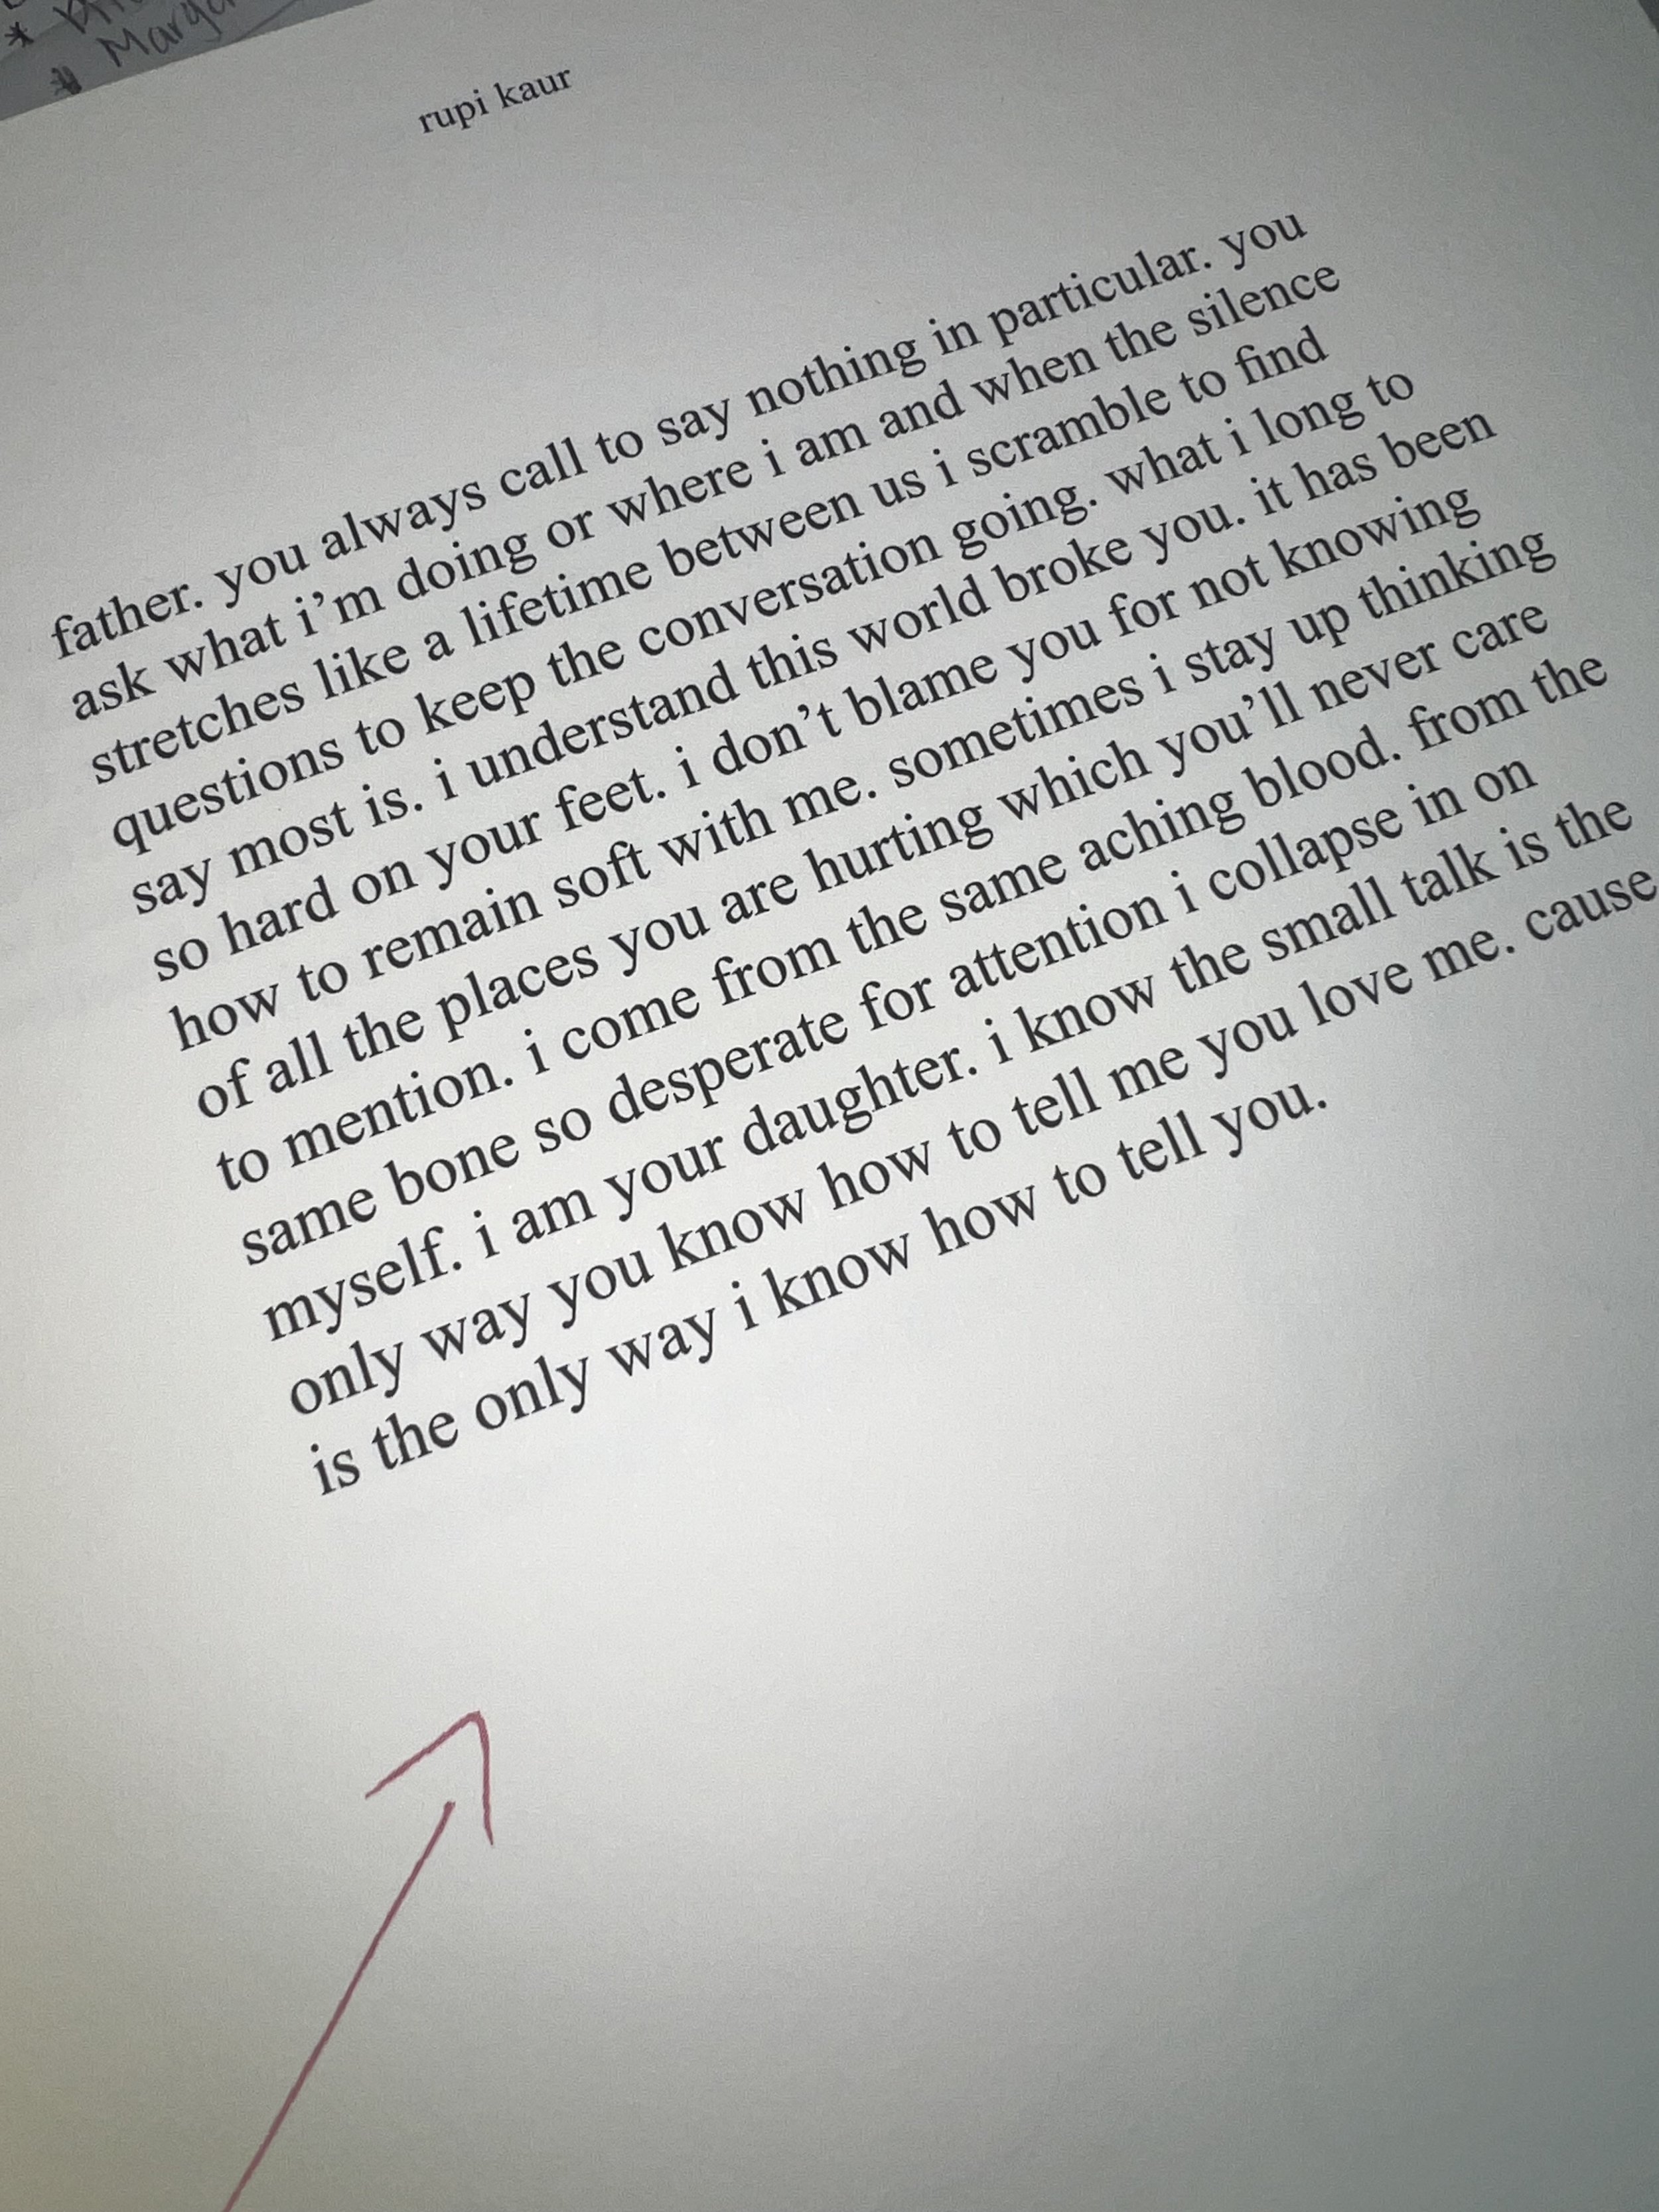 rupi kaur
father. you always call to say nothing in particular. you
ask what i’m doing or where i am and when the silence
stretches like a lifetime between us i scramble to find
questions to keep the conversation going. what i long to
say most is. i understand this world broke you. it has been
so hard on your feet. i don’t blame you for not knowing
how to remain soft with me. sometimes i stay up thinking
of all the places you are hurting which you’ll never care
to mention. i come from the same aching blood. from the
same bone so desperate for attention i collapse in on
myself. i am your daughter. i know the small talk is the
only way you know how to tell me you love me. cause
is the only way i know how to tell you.